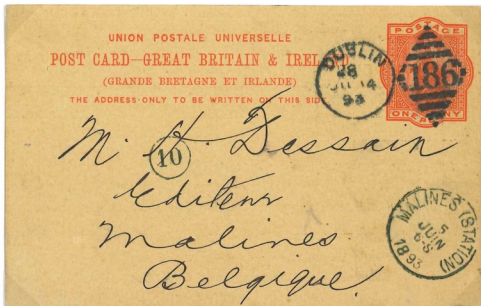 UNION POSTALE UNIVERSELLE
POST CARD–GREAT BRITAIN & IRELAND
(GRANDE BRETAGNE ET IRLANDE)
THE ADDRESS ONLY TO BE WRITTEN ON THIS SIDE
POSTAGE
ONE PENNY
DUBLIN
93
186
10
M. H. Dessain
Editeur
Malines
Belgique.
MALINES (STATION)
5
JUIN
6-S
1893